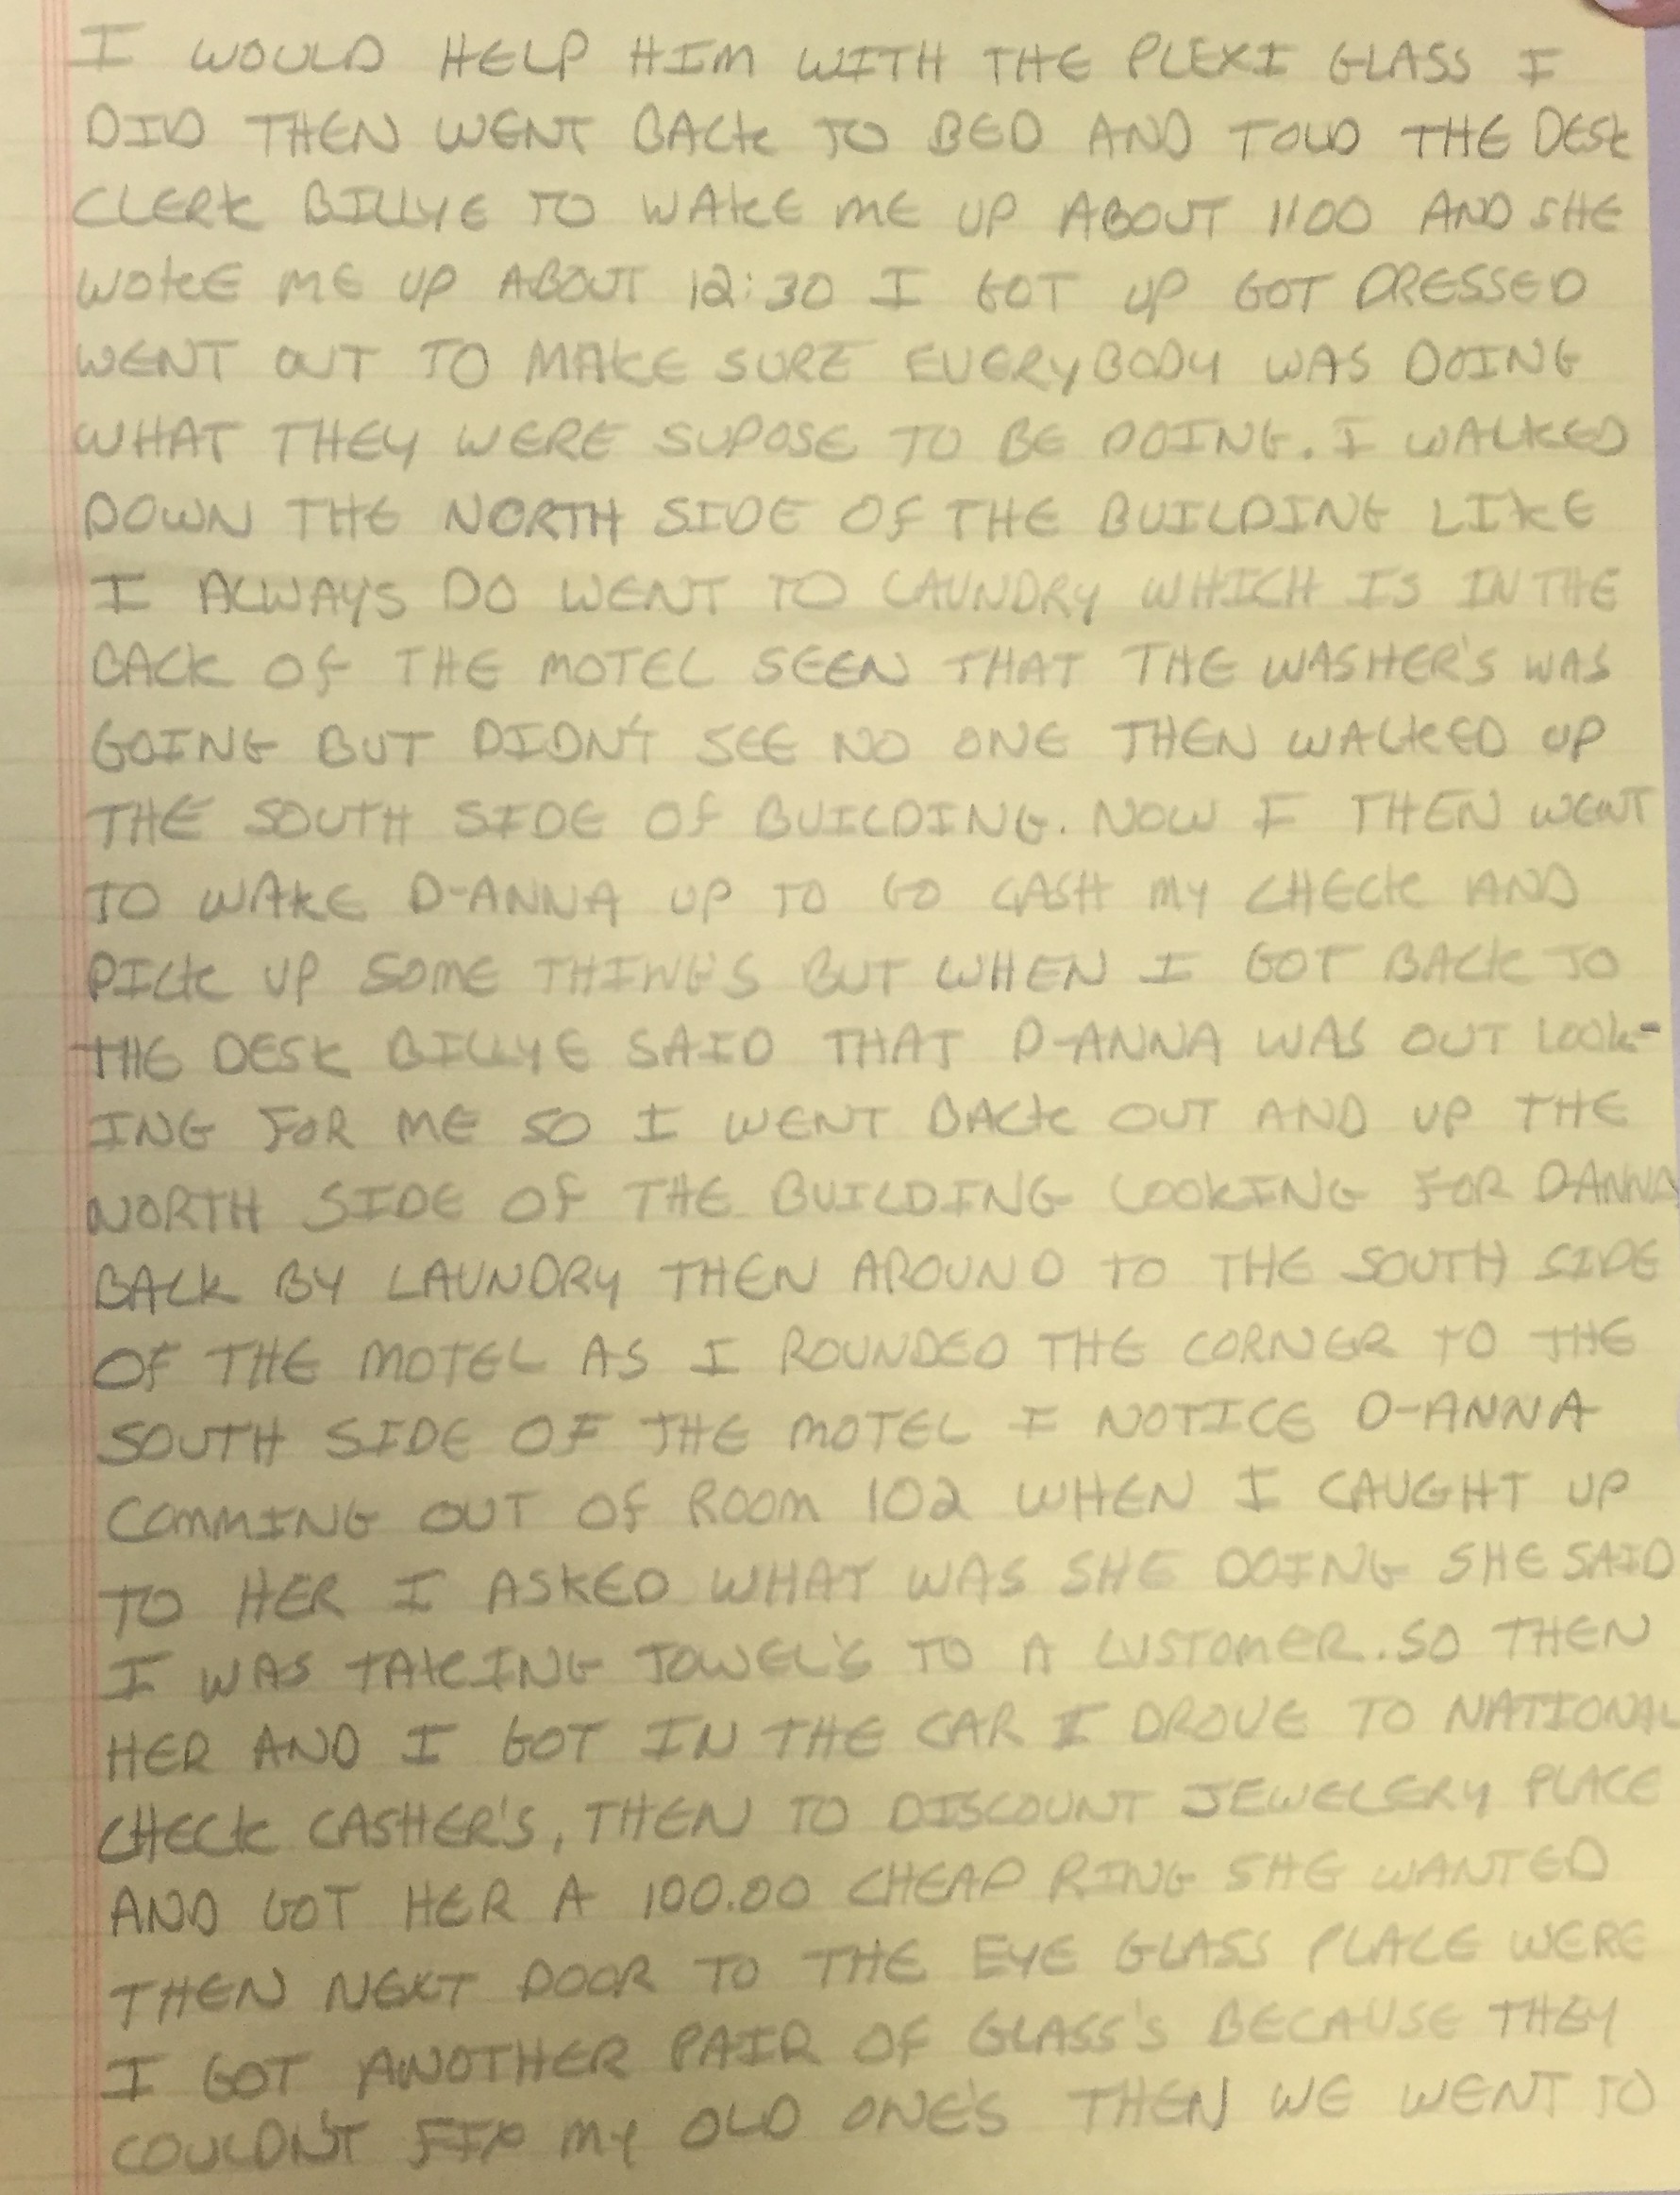 I WOULD HELP HIM WITH THE PLEXI GLASS I
DID THEN WENT BACK TO BED AND TOLD THE DESK
CLERK BILLYE TO WAKE ME UP ABOUT 1100 AND SHE
WOKE ME UP ABOUT 12:30 I GOT UP GOT DRESSED
WENT OUT TO MAKE SURE EVERYBODY WAS DOING
WHAT THEY WERE SUPOSE TO BE DOING. I WALKED
DOWN THE NORTH SIDE OF THE BUILDING LIKE
I ALWAYS DO WENT TO LAUNDRY WHICH IS IN THE
BACK OF THE MOTEL SEEN THAT THE WASHER'S WAS
GOING BUT DIDN'T SEE NO ONE THEN WALKED UP
THE SOUTH SIDE OF BUILDING. NOW I THEN WENT
TO WAKE D-ANNA UP TO GO CASH MY CHECK AND
PICK UP SOME THINGS BUT WHEN I GOT BACK TO
THE DESK BILLYE SAID THAT D-ANNA WAS OUT LOOK-
ING FOR ME SO I WENT BACK OUT AND UP THE
NORTH SIDE OF THE BUILDING LOOKING FOR DANNA
BACK BY LAUNDRY THEN AROUND TO THE SOUTH SIDE
OF THE MOTEL AS I ROUNDED THE CORNER TO THE
SOUTH SIDE OF THE MOTEL I NOTICE D-ANNA
COMMING OUT OF ROOM 102 WHEN I CAUGHT UP
TO HER I ASKED WHAT WAS SHE DOING SHE SAID
I WAS TAKING TOWEL'S TO A CUSTOMER. SO THEN
HER AND I GOT IN THE CAR I DROVE TO NATIONAL
CHECK CASHER'S, THEN TO DISCOUNT JEWELERY PLACE
AND GOT HER A 100.00 CHEAP RING SHE WANTED
THEN NEXT DOOR TO THE EYE GLASS PLACE WERE
I GOT ANOTHER PAIR OF GLASS'S BECAUSE THEY
COULDN'T FIX MY OLD ONE'S THEN WE WENT TO